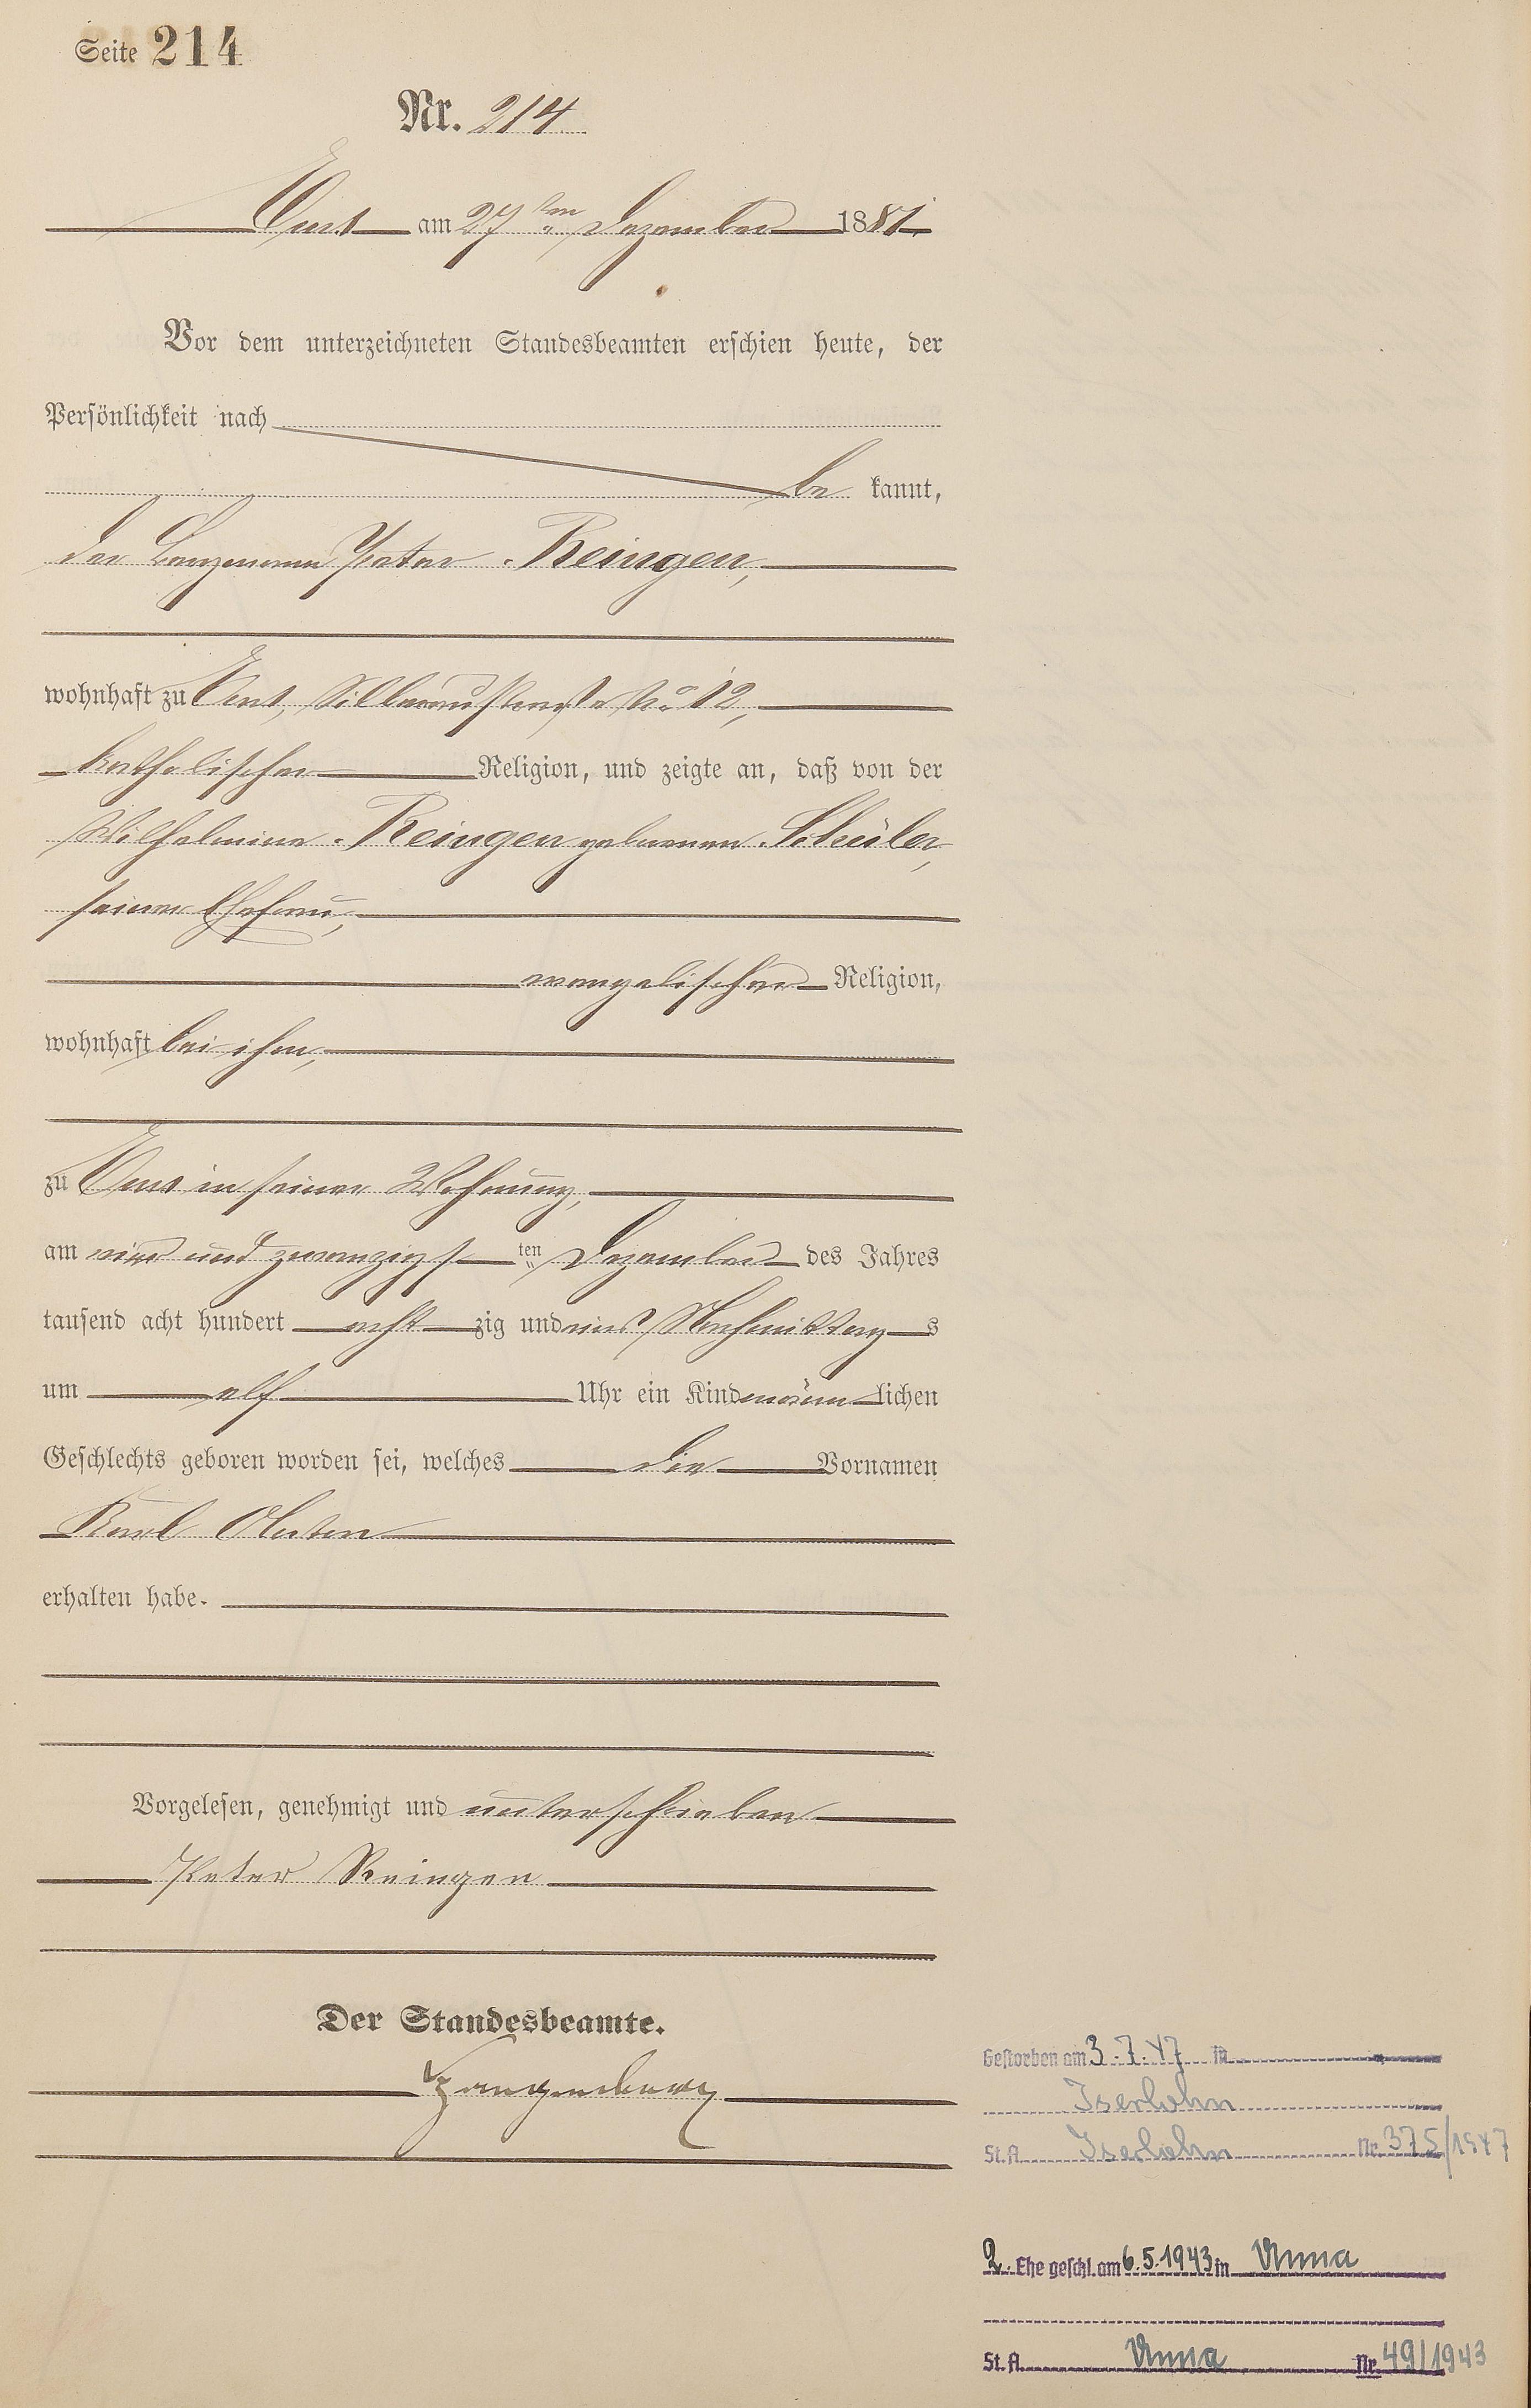 Seite 214
Nr. 214.
Ems am 27ten Dezember 1881.
Vor dem unterzeichneten Standesbeamten erschien heute, der
Persönlichkeit nach
be kannt,
der Bergmann Peter Reingen,
wohnhaft zu Ems, Silberaustraße No 12,
katholischer Religion, und zeigte an, daß von der
Wilhelmine Reingen geborenen Schüler,
seiner Ehefrau,
evangelischer Religion,
wohnhaft bei ihm,
zu Ems in seiner Wohnung,
am vier und zwanzigsten Dezember des Jahres
tausend acht hundert acht zig und eins Nachmittags
um elf Uhr ein Kind männlichen
Geschlechts geboren worden sei, welches die Vornamen
Karl
erhalten habe.
Vorgelesen, genehmigt und unterschrieben
Peter Reingen
Der Standesbeamte.
Gestorben am 3.7.47 in
Iserlohn
St.A. Iserlohn Nr. 375/1947
2. Ehe geschl. am 6.5.1943 in Unna
St.A. Unna Nr. 49/1943